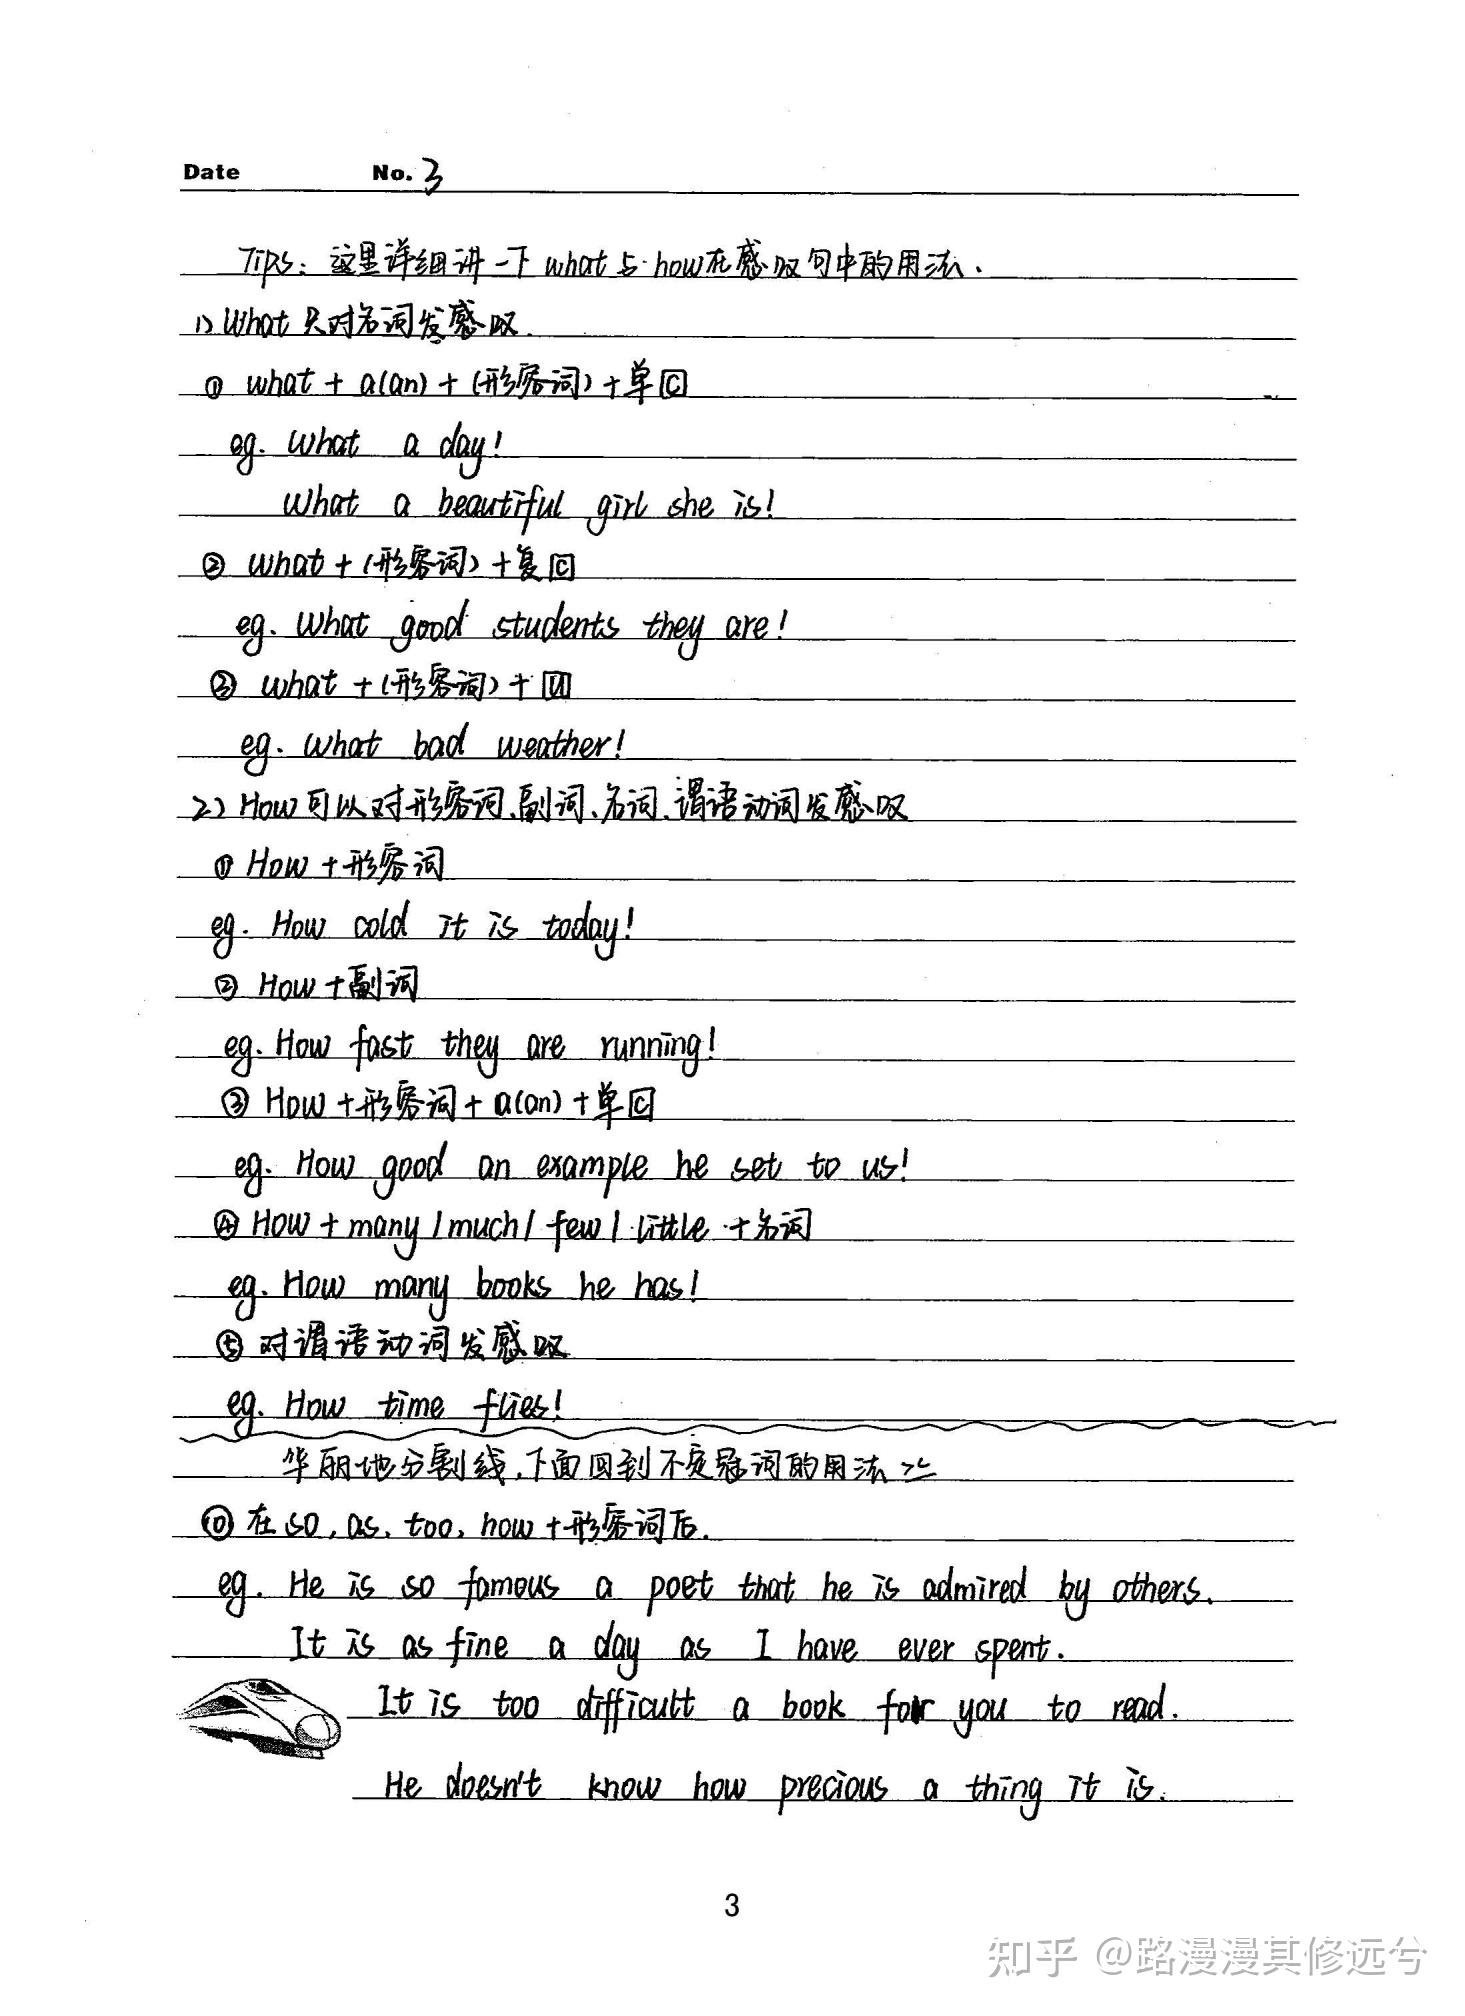 Date No. 3
Tips: 这里详细讲一下 what 与 how在感叹句中的用法.
1) What 只对名词发感叹.
① what + a(an) + (形容词) + 单[C]
eg. What a day!
What a beautiful girl she is!
② what + (形容词) + 复[C]
eg. What good students they are!
③ what + (形容词) + [U]
eg. What bad weather!
2) How可以对形容词、副词、名词、谓语动词发感叹
① How + 形容词
eg. How cold it is today!
② How + 副词
eg. How fast they are running!
③ How + 形容词 + a(an) + 单[C]
eg. How good an example he set to us!
④ How + many / much / few / little + 名词
eg. How many books he has!
⑤ 对谓语动词发感叹
eg. How time flies!
华丽地分割线,下面回到不定冠词的用法
⑩ 在 so, as, too, how + 形容词后.
eg. He is so famous a poet that he is admired by others.
It is as fine a day as I have ever spent.
It is too difficult a book for you to read.
He doesn't know how precious a thing it is.
3
知乎 @路漫漫其修远兮